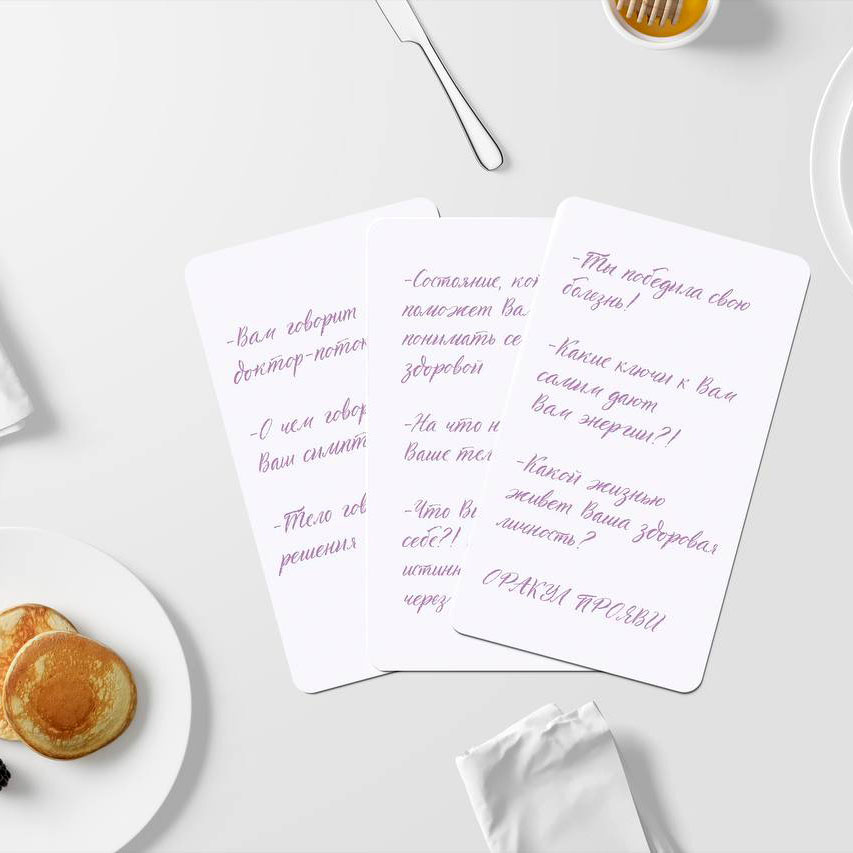 -Вам говорит
доктор-поток
-О чем говор
Ваш симпт
-Тело гов
решения
-Состояние, кот
поможет Ва
понимать се
здоровой
-На что н
Ваше тел
-Что Вы
себе?!
истинн
через
-Ты победила свою
болезнь!
-Какие ключи к Вам
самим дают
Вам энергии?!
-Какой жизнью
живет Ваша здоровая
личность?
ОРАКУЛ ПРОЯВИ